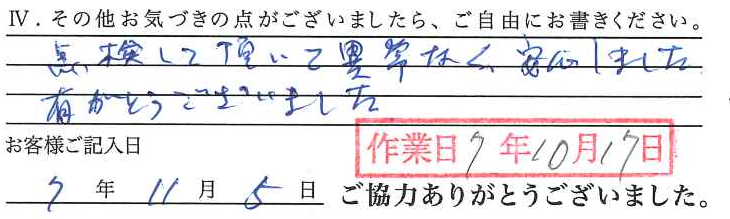 Ⅳ．その他お気づきの点がございましたら、ご自由にお書きください。
点検して頂いて異常なく、安心しました
有がとうございました
お客様ご記入日
作業日7年10月17日
7年11月5日 ご協力ありがとうございました。